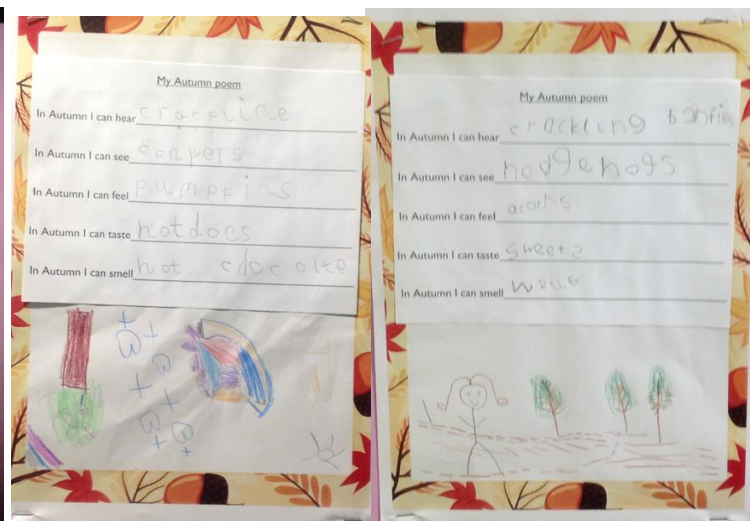 My Autumn poem
In Autumn I can hear crackline
In Autumn I can see conpers
In Autumn I can feel pumpkins
In Autumn I can taste hotdoes
In Autumn I can smell hot cdocolte
My Autumn poem
In Autumn I can hear crackling bonfires
In Autumn I can see hedgehogs
In Autumn I can feel acorns
In Autumn I can taste sweets
In Autumn I can smell